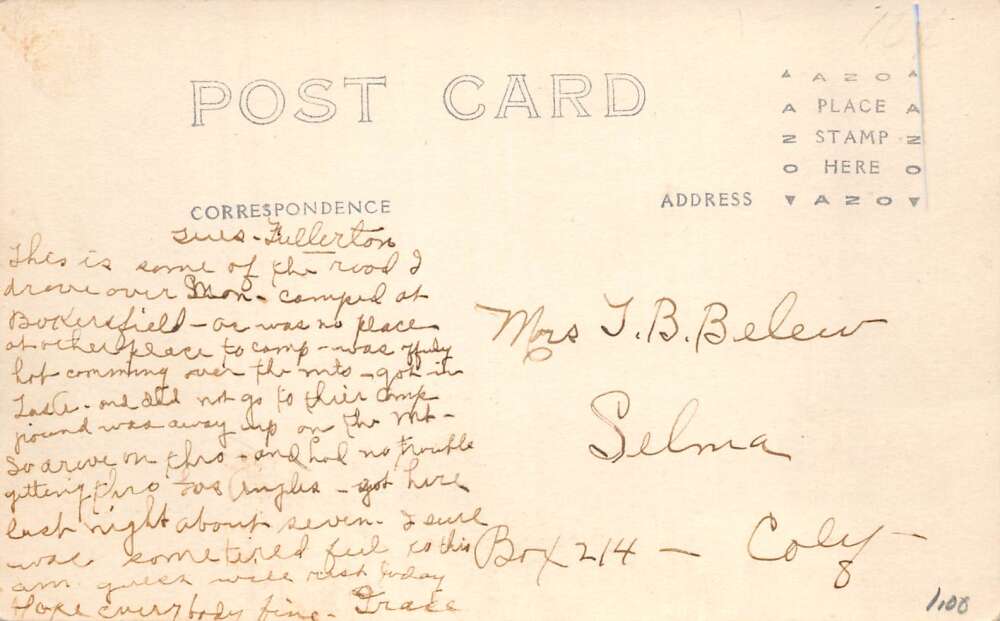 POST CARD
AZO
PLACE
STAMP
HERE
AZO
CORRESPONDENCE
ADDRESS
Tues - Fullerton
This is some of the road I
drove over Mon - camped at
Bakersfield - as was no place
at other place to camp - was
hot comming over the mts - got in
Late - and did not go to thier camp
was away up on the Mt -
So drove on thro - and had no trouble
getting thro Los Angles - got here
last night about seven. I sure
was some tired feel so this
am. guess will rest today
Hope everybody fine - Grace
Mrs T. B. Belew
Selma
Box 214 - Calif -
1.00